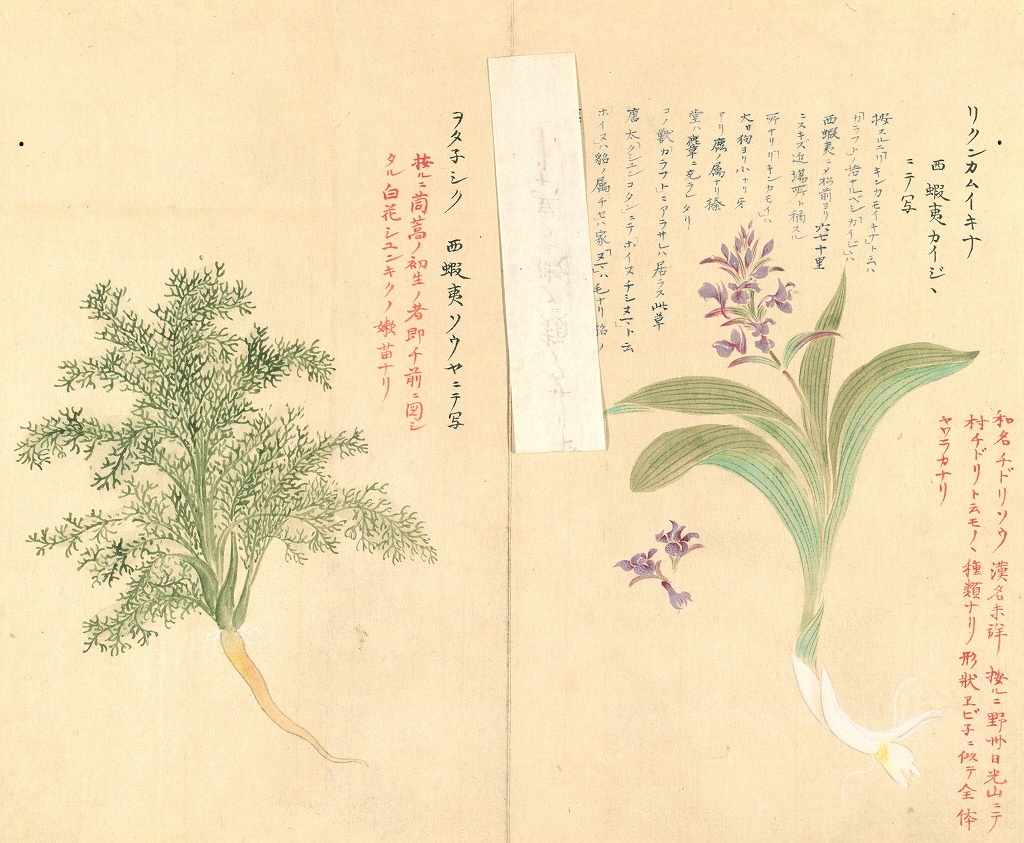 リクンカムイキナ
西蝦夷カイジヽ
ニテ写
按スルニ「リキンカモイキナ」ト云ハ
「カラフト」ノ語ナルベシ「カイビ」ハ
西蝦夷ニメ松前ヨリ六七十里
ニスキズ近場所ト称スル
所ナリ「リキンカモイ」ハ
大サ狗ヨリ小ナリ牙
アリ麕ノ属ナリ
堂ハ麝葦ニ充ラレタリ
コノ獣カラフトニアラサレハ居ラス此草
唐太「クシュンコタン」ニテ「ホイヌチシヌマニ」ト云
ホイヌハ貂ノ属チセハ家「ヌマ」ハ毛ナリ貂ノ
和名チドリソウ 漢名未詳 按ルニ野州日光山ニテ
村チドリト云モノヽ種類ナリ 形状ヱビ子ニ似テ全体
ヤワラカナリ
ヲタ子シク 西蝦夷ソウヤニテ写
按ルニ茼蒿ノ初生ノ者即チ前ニ図シ
タル白花シユンキクノ嫩苗ナリ